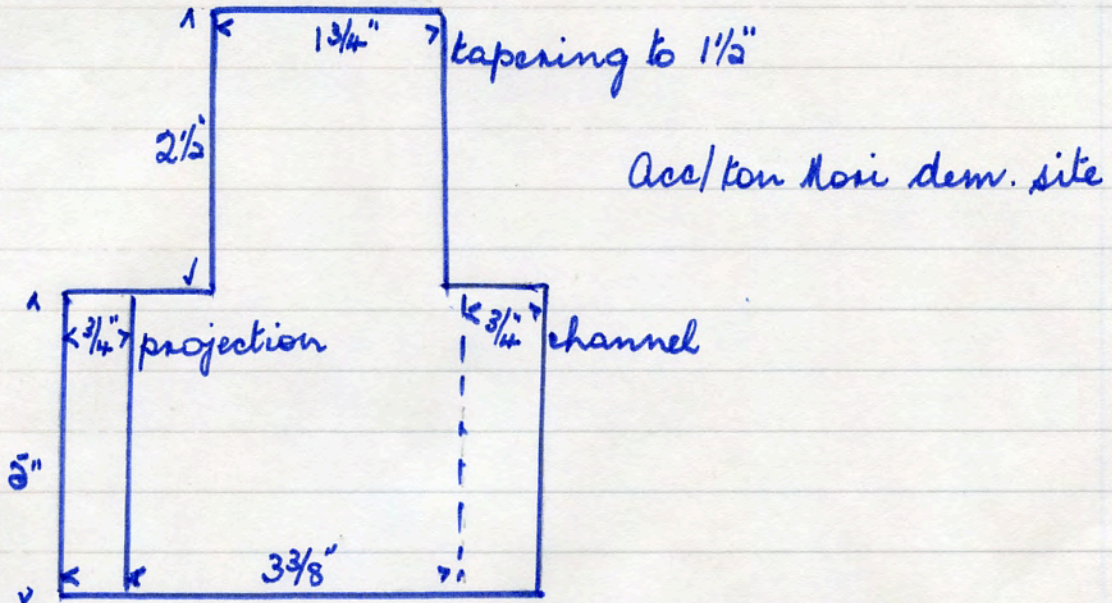 1 3/4"
tapering to 1 1/2"
2 1/2"
dem. site
3/4" projection
3/4" channel
5"
3 3/8"